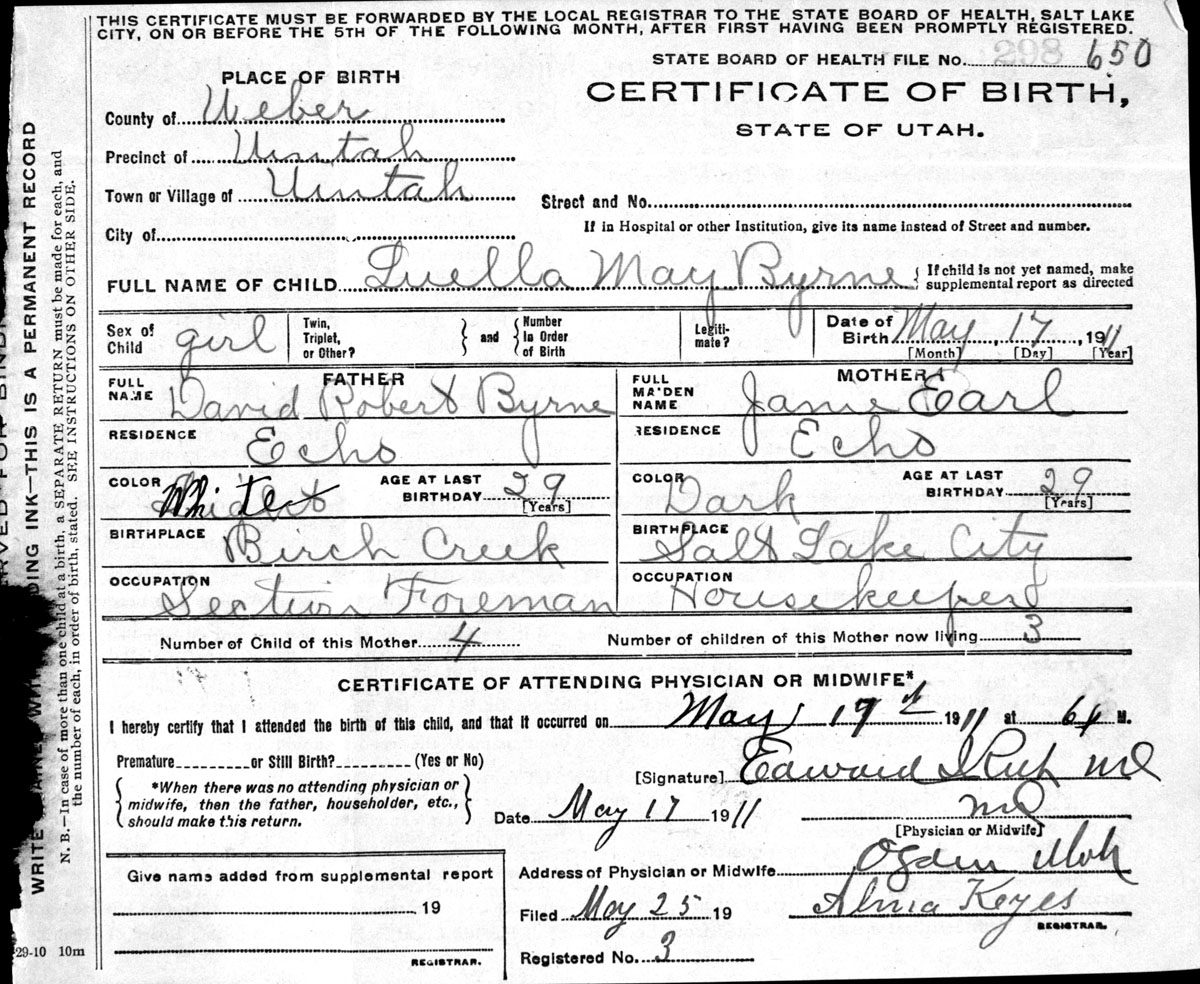 THIS CERTIFICATE MUST BE FORWARDED BY THE LOCAL REGISTRAR TO THE STATE BOARD OF HEALTH, SALT LAKE
CITY, ON OR BEFORE THE 5TH OF THE FOLLOWING MONTH, AFTER FIRST HAVING BEEN PROMPTLY REGISTERED.
STATE BOARD OF HEALTH FILE NO. 298 650
PLACE OF BIRTH
CERTIFICATE OF BIRTH,
STATE OF UTAH.
County of Weber
Precinct of Uintah
Town or Village of Uintah
Street and No.
City of
If in Hospital or other Institution, give its name instead of Street and number.
FULL NAME OF CHILD Luella May Byrne { If child is not yet named, make
supplemental report as directed
Sex of Child girl Twin, Triplet, or Other? } and { Number in Order of Birth Legiti-mate? Date of Birth May 17, 1911
[Month] [Day] [Year]
FATHER MOTHER
FULL NAME David Robert Byrne FULL MAIDEN NAME Jane Earl
RESIDENCE Echo RESIDENCE Echo
COLOR White AGE AT LAST BIRTHDAY 29 [Years] COLOR Dark AGE AT LAST BIRTHDAY 29 [Years]
BIRTHPLACE Birch Creek BIRTHPLACE Salt Lake City
OCCUPATION Section Foreman OCCUPATION Housekeeper
Number of Child of this Mother 4 Number of children of this Mother now living 3
CERTIFICATE OF ATTENDING PHYSICIAN OR MIDWIFE*
I hereby certify that I attended the birth of this child, and that it occurred on May 17th 1911 at 6 M.
Premature or Still Birth? (Yes or No)
[Signature] Edward I Rich MD
*When there was no attending physician or
midwife, then the father, householder, etc.,
should make this return.
Date May 17 1911
MD
[Physician or Midwife]
Give name added from supplemental report
19
REGISTRAR.
Address of Physician or Midwife Ogden Utah
Filed May 25 19 Alma Keyes
REGISTRAR.
Registered No. 3
29-10 10m
DING INK—THIS IS A PERMANENT RECORD
N. B.—In case of more than one child at a birth, a SEPARATE RETURN must be made for each, and
the number of each, in order of birth, stated. SEE INSTRUCTIONS ON OTHER SIDE.